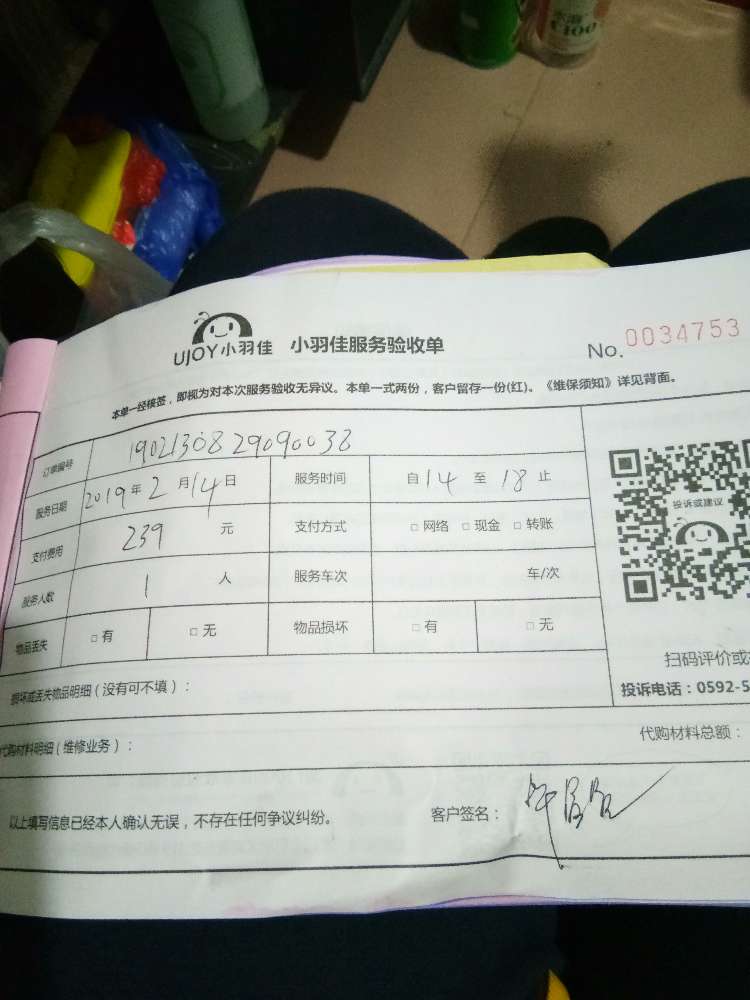 UJOY小羽佳 小羽佳服务验收单 No. 0034753
本单一经核签，即视为对本次服务验收无异议。本单一式两份，客户留存一份(红)。《维保须知》详见背面。
订单编号 1902130829090038
服务日期 2019年2月14日 服务时间 自14至18止
支付费用 239元 支付方式 □网络 □现金 □转账
服务人数 1人 服务车次 车/次
物品丢失 □有 □无 物品损坏 □有 □无
投诉或建议
扫码评价或
投诉电话：0592-5
损坏或丢失物品明细(没有可不填)：
代购材料明细(维修业务)： 代购材料总额：
以上填写信息已经本人确认无误，不存在任何争议纠纷。 客户签名：